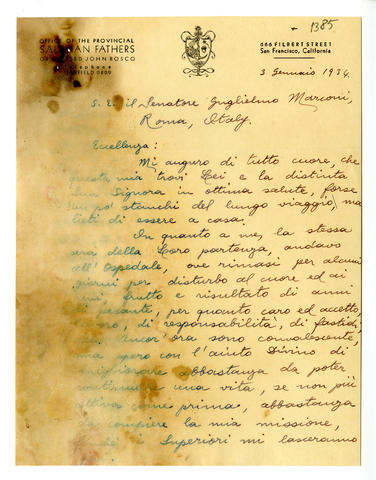 1385
OFFICE OF THE PROVINCIAL
SALESIAN FATHERS
OF BLESSED JOHN BOSCO
Telephone
GARFIELD 0809
666 FILBERT STREET
San Francisco, California
3 Gennaio 1934.
S. E. il Senatore Guglielmo Marconi,
Roma, Italy.
Eccellenza:
Mi auguro di tutto cuore, che
questa mia trovi Lei e la distinta
Sua Signora in ottima salute, forse
un po' stanchi del lungo viaggio, ma
lieti di essere a casa.
In quanto a me, la stessa
sera della Loro partenza, andavo
all'Ospedale, ove rimasi per alcuni
giorni per disturbo al cuore ed ai
frutto e risultato di anni
di pesante, per quanto caro ed accetto,
lavoro, di responsabilità, di fastidi,
Ancor'ora sono convalescente,
ma spero con l'aiuto Divino di
migliorare abbastanza da poter
continuare una vita, se non più
attiva come prima, abbastanza
da compiere la mia missione,
i Superiori mi lasceranno